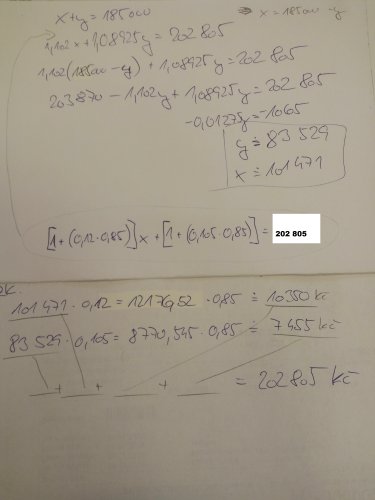 x+y = 185000
x = 185000 -y
1,102 x + 1,08925y = 202 805
1,102(185000 -y) + 1,08925y = 202 805
203870 - 1,102y + 1,08925y = 202 805
-0,01275y = -1065
y ≐ 83 529
x ≐ 101 471
[1+(0,12·0,85)] x + [1+ (0,105·0,85)] = 202 805
ZK.
101 471 · 0,12 = 12176,52 · 0,85 ≐ 10350 Kč
83 529 · 0,105 = 8770,545 · 0,85 ≐ 7455 Kč
__ + __ + __ + __ = 202805 Kč